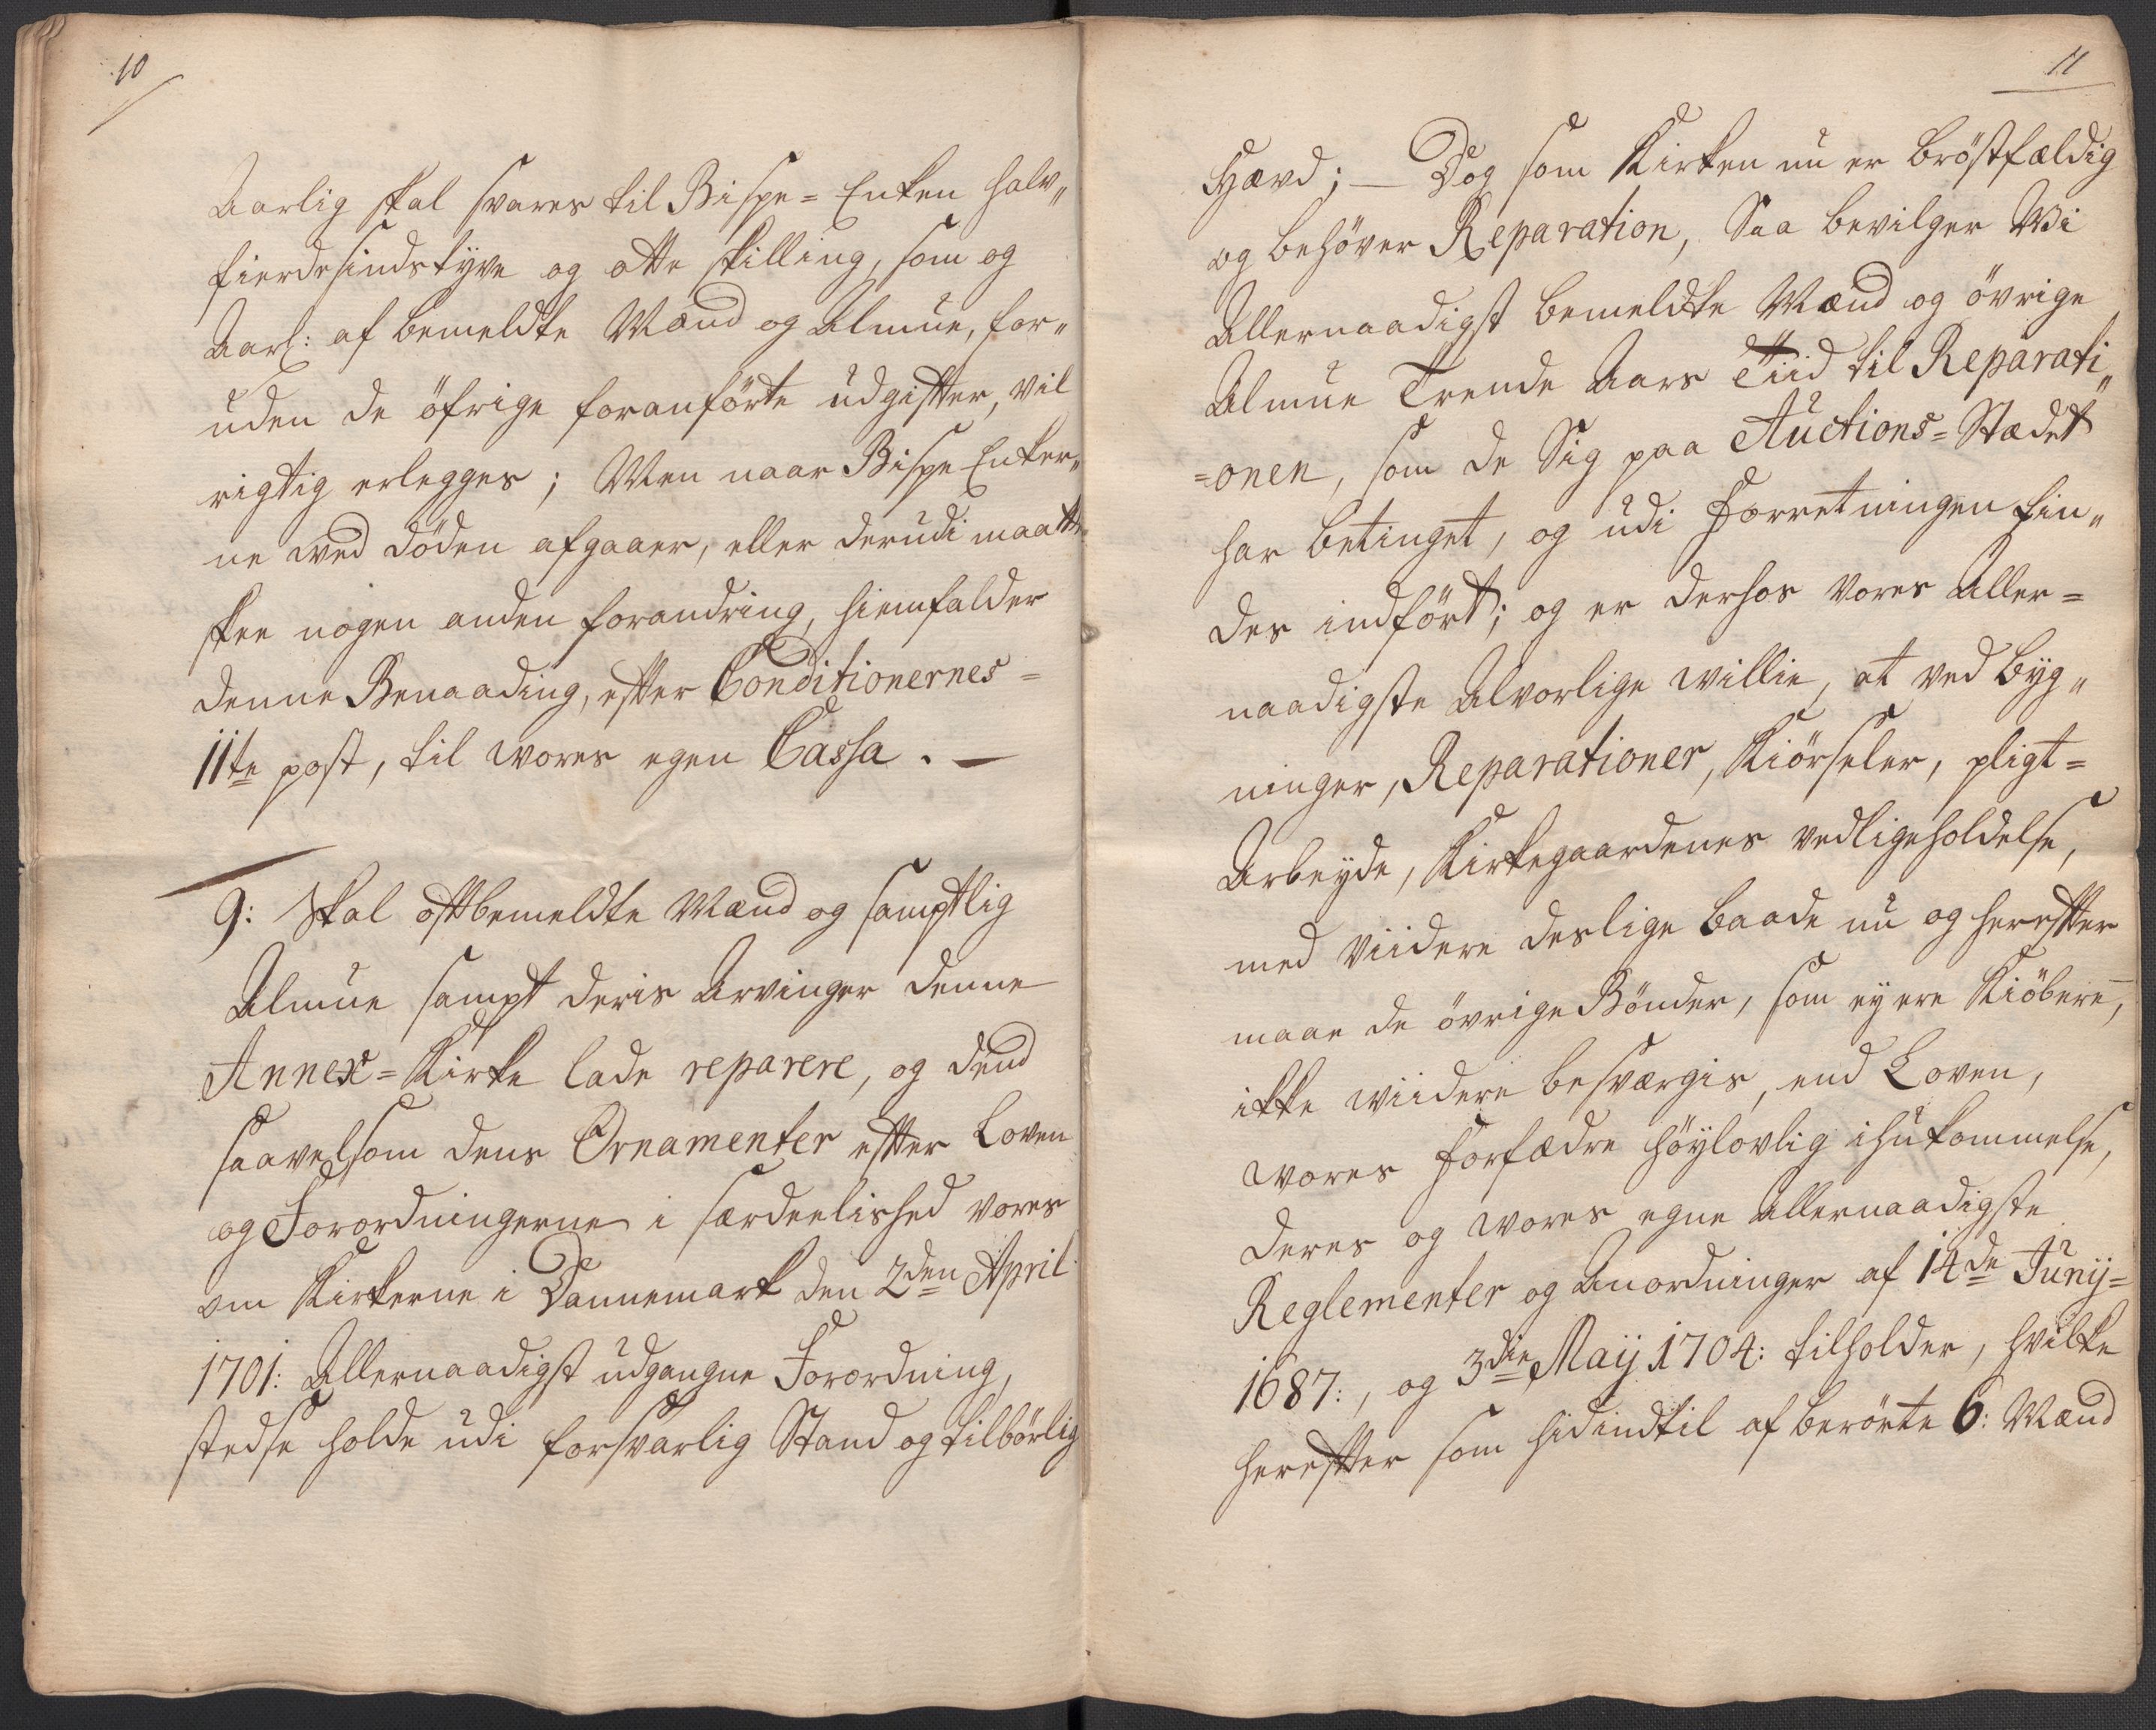 10
Aarlig skal svares til Bispe=Enken halv„
fierdesindstyve og otte skilling, som og
Aarl: af bemeldte Mænd og Almue, for„
uden de öfrige foranførte udgifter, vil
rigtig erlegges; Men naar Bispe Enker„
ne ved döden afgaaer, eller derudi maatte
skee nogen anden forandring, hiemfalder
denne Benaading, efter Conditionernes=
11te post, til vores egen Cassa. —
9: Skal oftbemeldte Mænd og samptlig
Almue sampt deris Arvinger denne
Annex=Kirke lade reparere, og dend
saavelsom dens Ornamenter efter Loven
og Forordningerne i særdeelished vores
om Kirkerne i Dannemark den 2den April
1701: Allernaadigst udgangne Forordning,
stedse holde udi forsvarlig Stand og tilbörlig
11
Hævd; — Dog som Kirken nu er bröstfældig
og behöver Reparation, Saa bevilger Vi
Allernaadigst bemeldte Mænd og övrige
Almue Trende Aars Tiid til Reparati„
=onen, som de Sig paa Auctions=Stædet
har betinget, og udi Forretningen fin„
des indført; og er derhos Vores Aller=
naadigste Alvorlige Villie, at ved Byg„
ninger, Reparationer, Kiörseler, pligt=
Arbeyde, Kirkegaardenes vedligeholdelse,
med Viidere deslige baade nu og herefter
maae de övrige Bönder, som ey ere Kiöbere,
ikke viidere besværgis, end Loven,
vores Forfædre höylovlig ihukommelse,
deres og vores egne Allernaadigste
Reglementer og Anordninger af 14de Junij=
1687:, og 3die Maij 1704: tilholder, hvilke
herefter som hidindtil af berörte 6: Mænd